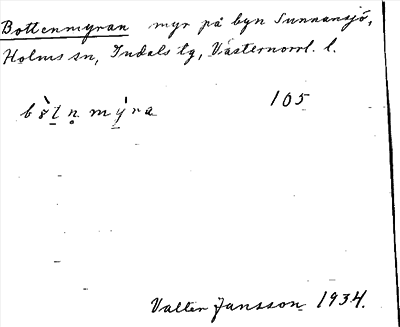 Bottenmyran myr på byn Sunnansjö,
Holms sn, Indals tg, Västernorrl. l.
bòt̲n̥ mý̲ra 105
Valter Jansson 1934.